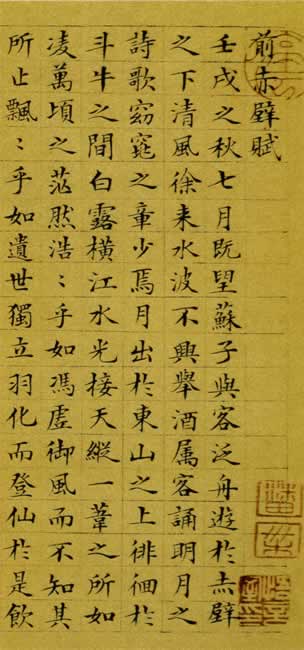 前赤壁賦
壬戌之秋七月既望蘇子與客泛舟遊於赤壁
之下清風徐来水波不興舉酒属客誦明月之
詩歌窈窕之章少焉月出於東山之上徘徊於
斗牛之間白露橫江水光接天縱一葦之所如
凌萬頃之茫然浩〻乎如馮虛御風而不知其
所止飄〻乎如遺世獨立羽化而登仙於是飲